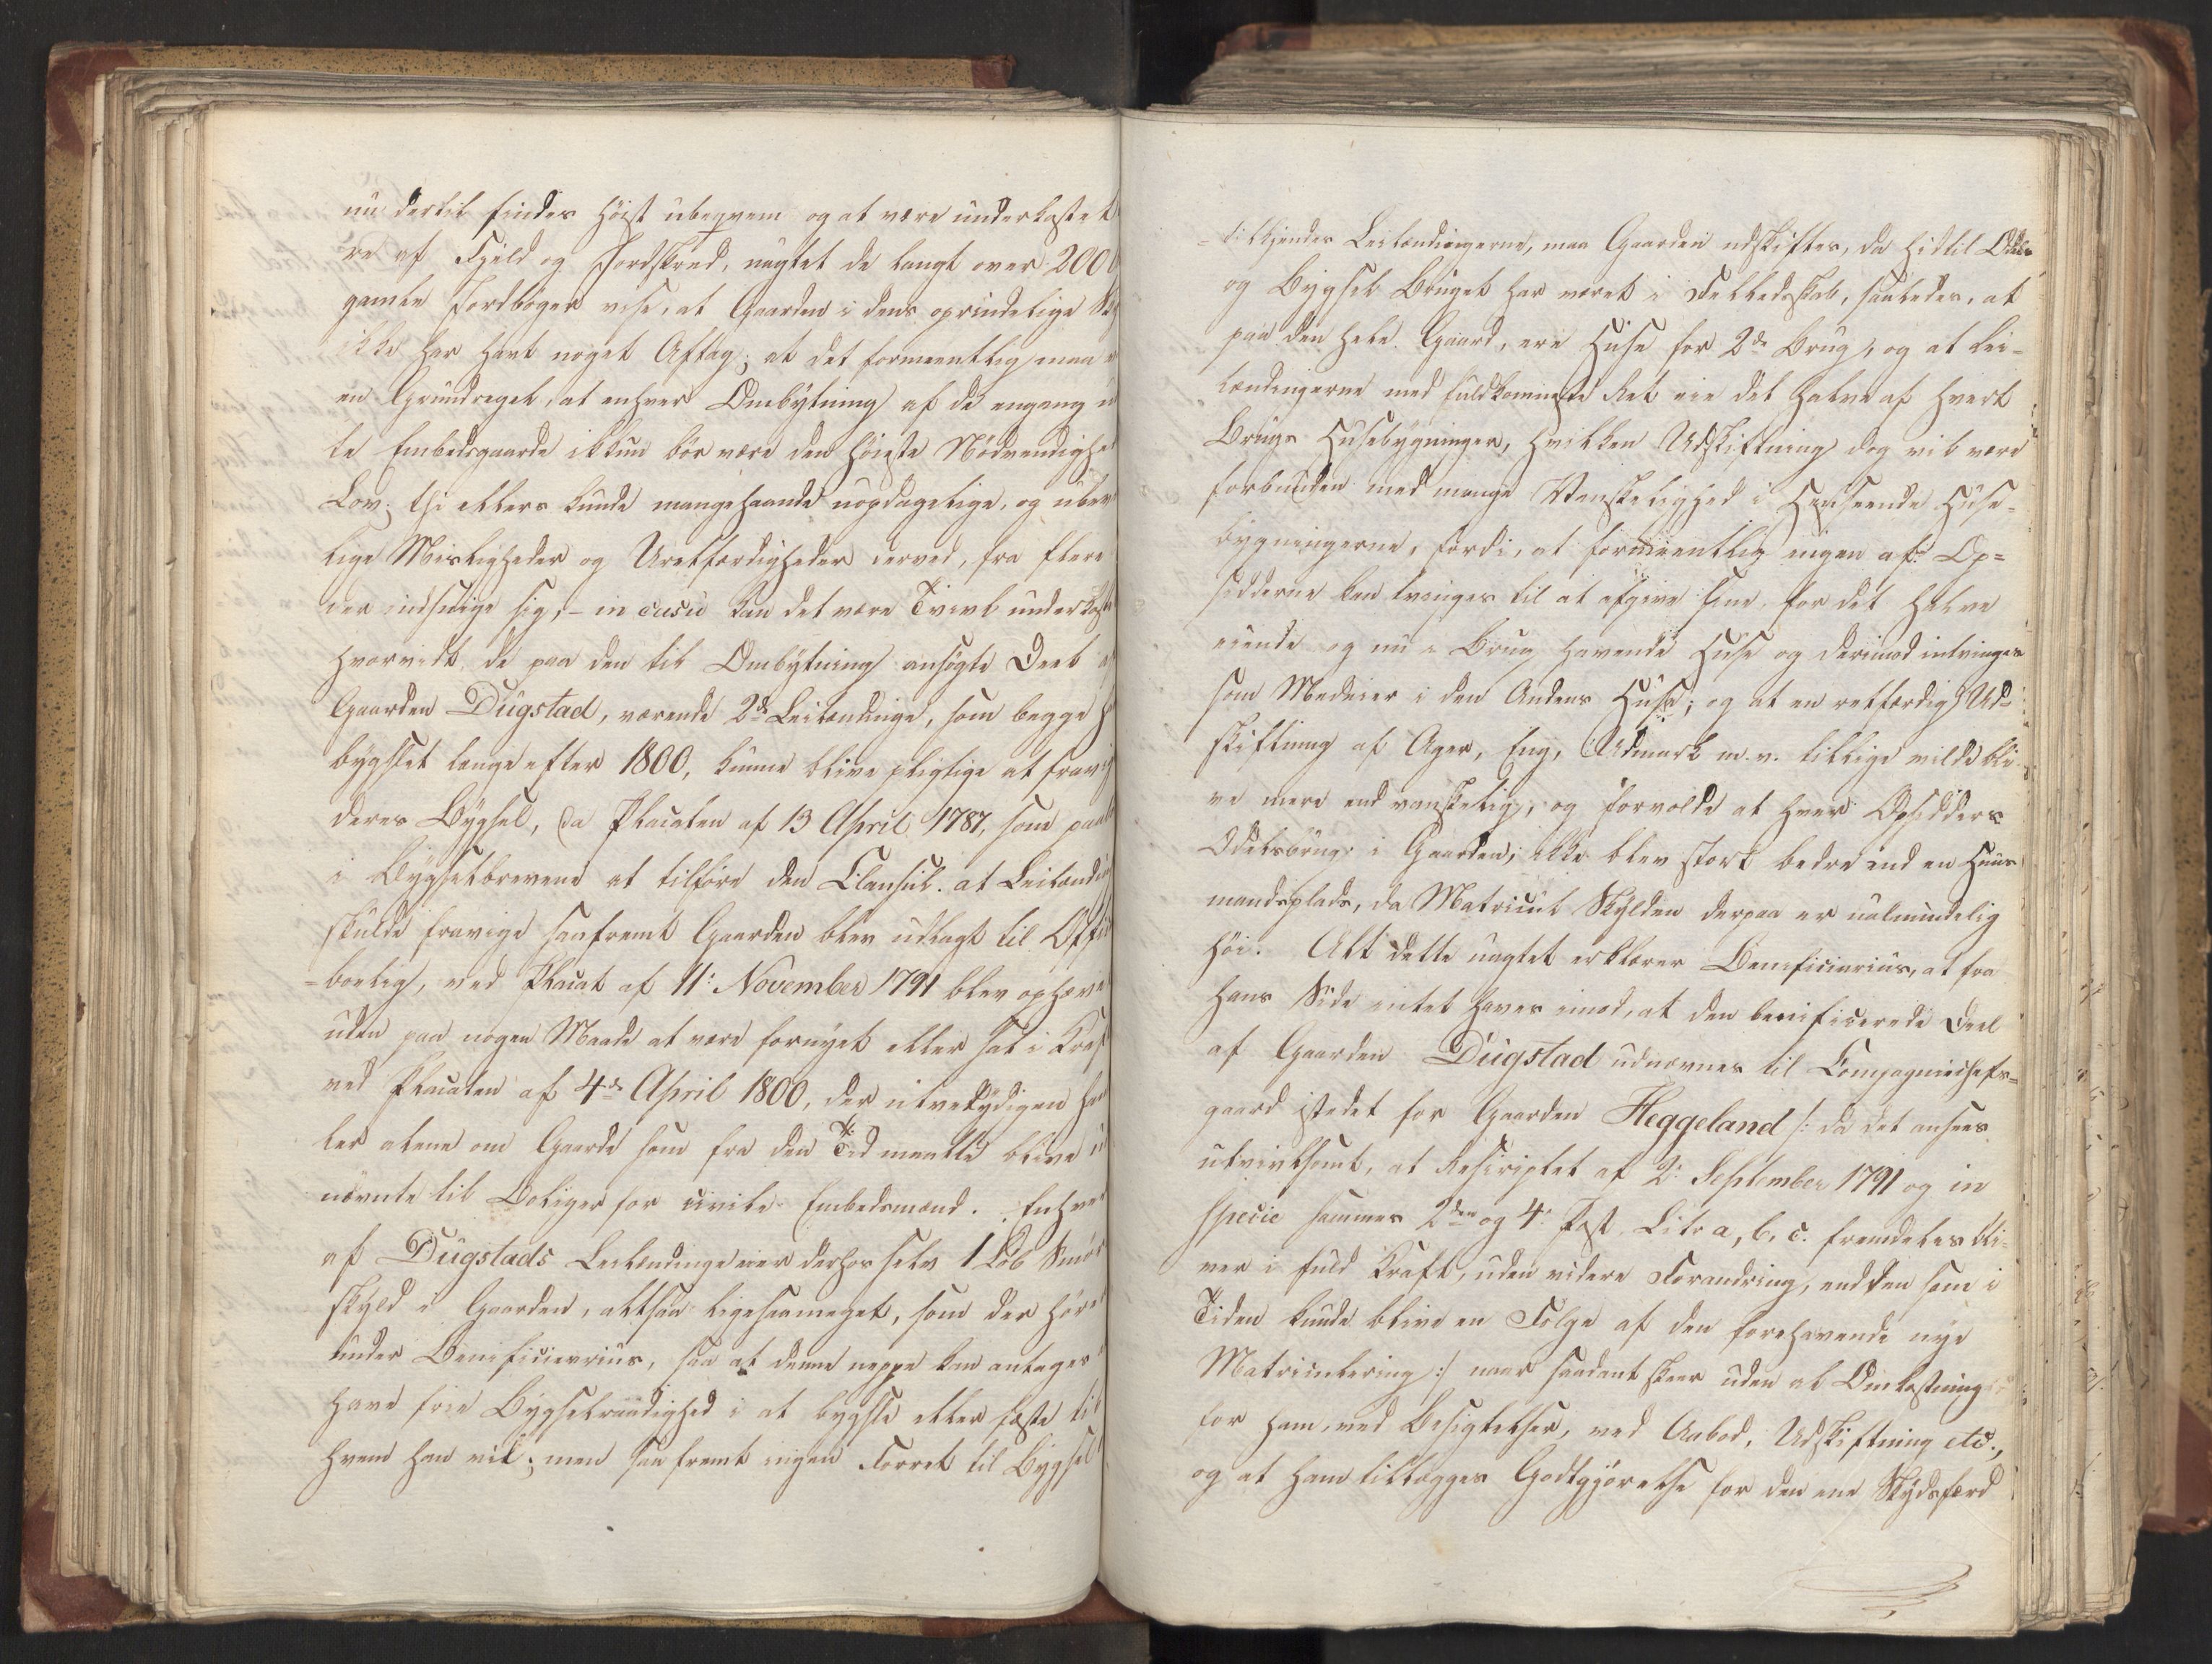 nu dertil findes höist ubeqvem og at være underkastet
re af Fjeld og Jordskred, uagtet de langt over 200
gamle Jordböger vise, at Gaarden i dens oprindelige
ikke har havt noget Aftag; at det formeentlig maa
en Grundregel, at enhver Ombÿtning af de engang
te Embedsgaarde ikkun bör være den höieste Nödvendighe
Lov; thi ellers kunde mangehaande uopdagelige, og
lige Misligheder og Uretfærdigheder derved, fra flere
der indsnige sig; – in casu kan det være Tvivl underkaste
hvorvidt de paa den til Ombÿtning ansögte Deel
Gaarden Dügstad, værende 2de Leilændinge, som begge
bÿgslet længe efter 1800, kunne blive pligtige at fravi
deres Bÿgsel, da Placaten af 13 April 1787, som
i Bÿgselbrevene at tilföre den Clausul. at Leilændin
skulde fravige saafremt Gaarden blev udlagt til Offi
=boelig, ved Placat af 11: November 1791 blev ophæve
uden paa nogen Maade at være fornÿet eller sat i Kraf
ved Placaten af 4de April 1800, der utvetÿdigen han
ler alene om Gaarde som fra den Tid maatte blive
nævnte til Boliger for civile Embedsmænd. Enhver
af Dügstads Leilændinge eier derhos selv 1 Löb Smör
skÿld i Gaarden, altsaa ligesaameget, som der hörer
under Beneficiarius, saa at denne neppe kan antages
have frie Bÿgselraadighed i at bÿgsle eller fæste til
hvem han vil; men saafremt ingen Forret til Bÿgsel
=tilkjendes Leilændingerne, maa Gaarden udskiftes, da hidtil Odels
og Bÿgsel Bruget har været i Fælledsskab, saaledes, at
paa den hele Gaard, ere Huse for 2de Brug, og at Lei=
lændingerne med fuldkommeste Ret eie det halve af hvert
Brugs Husebÿgninger, hvilken Udskiftning dog vil være
forbunden med mange Vanskelighed i Henseende Huse=
bÿgningerne, fordi, at formeentlig ingen af Op=
sidderne kan tvinges til at afgive sine for det halve
eiende og nu i Brug havende Huse og derimod indtvinges
som Medeier i den Andens Huse; og at en retfærdig Ud=
skiftning af Ager, Eng, Udmark m. v. tillige vilde bli=
ve mere end vanskelig, og forvolde at hver Opsidders
Odelsbrug i Gaarden, ikke blev stort bedre end en Huus
mandsplads, da Matricul Skÿlden derpaa er ualmindelig
höi. Alt dette uagtet erklærer Beneficiarius, at fra
hans Side intet haves imod, at den beneficerede Deel
af Gaarden Dügstad udnævnes til Compagniechefs=
gaard istedet for Gaarden Heggeland /: da det ansees
utvivlsomt, at Rescriptet af 2: September 1791 og in
specie sammes 2den og 4: Post Litr a, b, c. fremdeles bli=
ver i fuld Kraft, uden videre Forandring, end den som i
Tiden kunde blive en Fölge af den forehavende nÿe
Matriculering :/ naar saadant skeer uden al Omkostning
for ham, ved Besigtelser, ved Aabod, Udskiftning etc.,
og at ham tillægges Godtgjörelse for den ene Skÿdsfærd